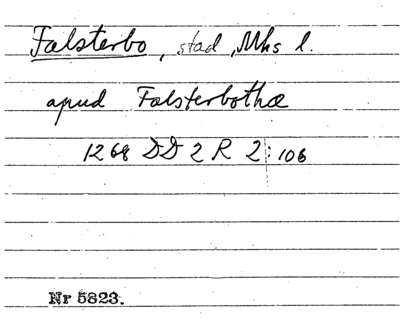 Falsterbo, stad, Mhs l.
apud Falsterbothæ
1268 DD 2 R 2:106
Nr 5823.